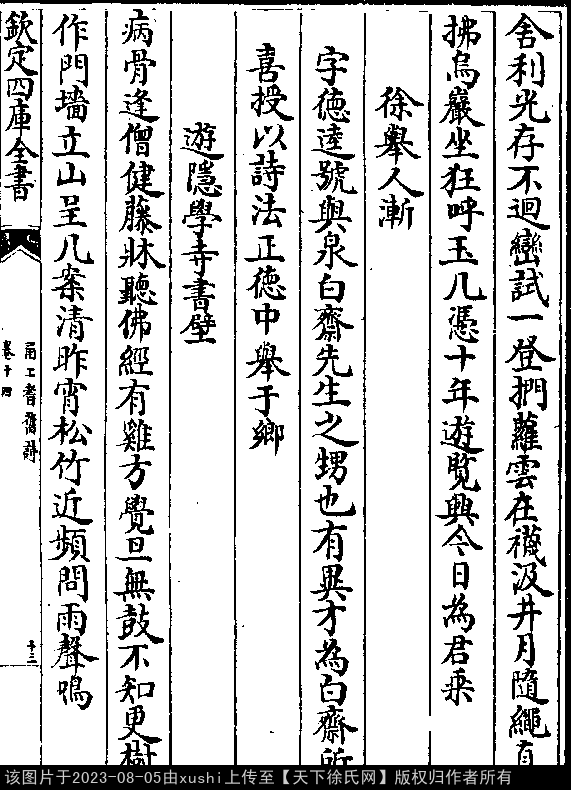 舎利光存不迴巒試一登捫蘿雲在襪汲井月隨繩
拂烏巖坐狂呼玉几憑十年遊覽興今日為君乗
徐舉人漸
字德逵號與泉白齋先生之甥也有異才為白齋所
喜授以詩法正德中舉于鄉
遊隱學寺書壁
病骨逢僧健藤牀聽佛經有雞方覺旦無鼓不知更樹
作門墻立山呈几案清昨宵松竹近頻問雨聲鳴
欽定四庫全書
甬上耆舊詩
卷十四
十三
该图片于2023-08-05由xushi上传至【天下徐氏网】版权归作者所有